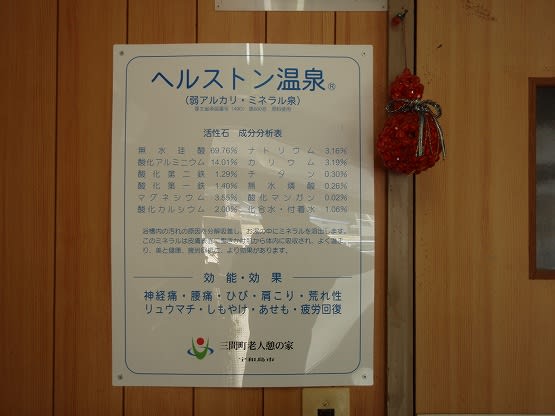 ヘルストン温泉®
(弱アルカリ・ミネラル泉)
活性石 成分分析表
無水硅酸 69.76% ナトリウム 3.16%
酸化アルミニウム 14.01% カリウム 3.19%
酸化第二鉄 1.29% チタン 0.30%
酸化第一鉄 1.40% 無水燐酸 0.26%
マグネシウム 3.55% 酸化マンガン 0.02%
酸化カルシウム 2.00% 化合水・付着水 1.06%
浴槽内の汚れの原因を分解吸着し、お湯の中にミネラルを溶出します。
このミネラルは皮膚表
から体内に吸収され、よく温ま
り、美と健康、疲労回復に、より効果があります。
効能・効果
神経痛・腰痛・ひび・肩こり・荒れ性
リュウマチ・しもやけ・あせも・疲労回復
三間町老人憩の家
宇和島市